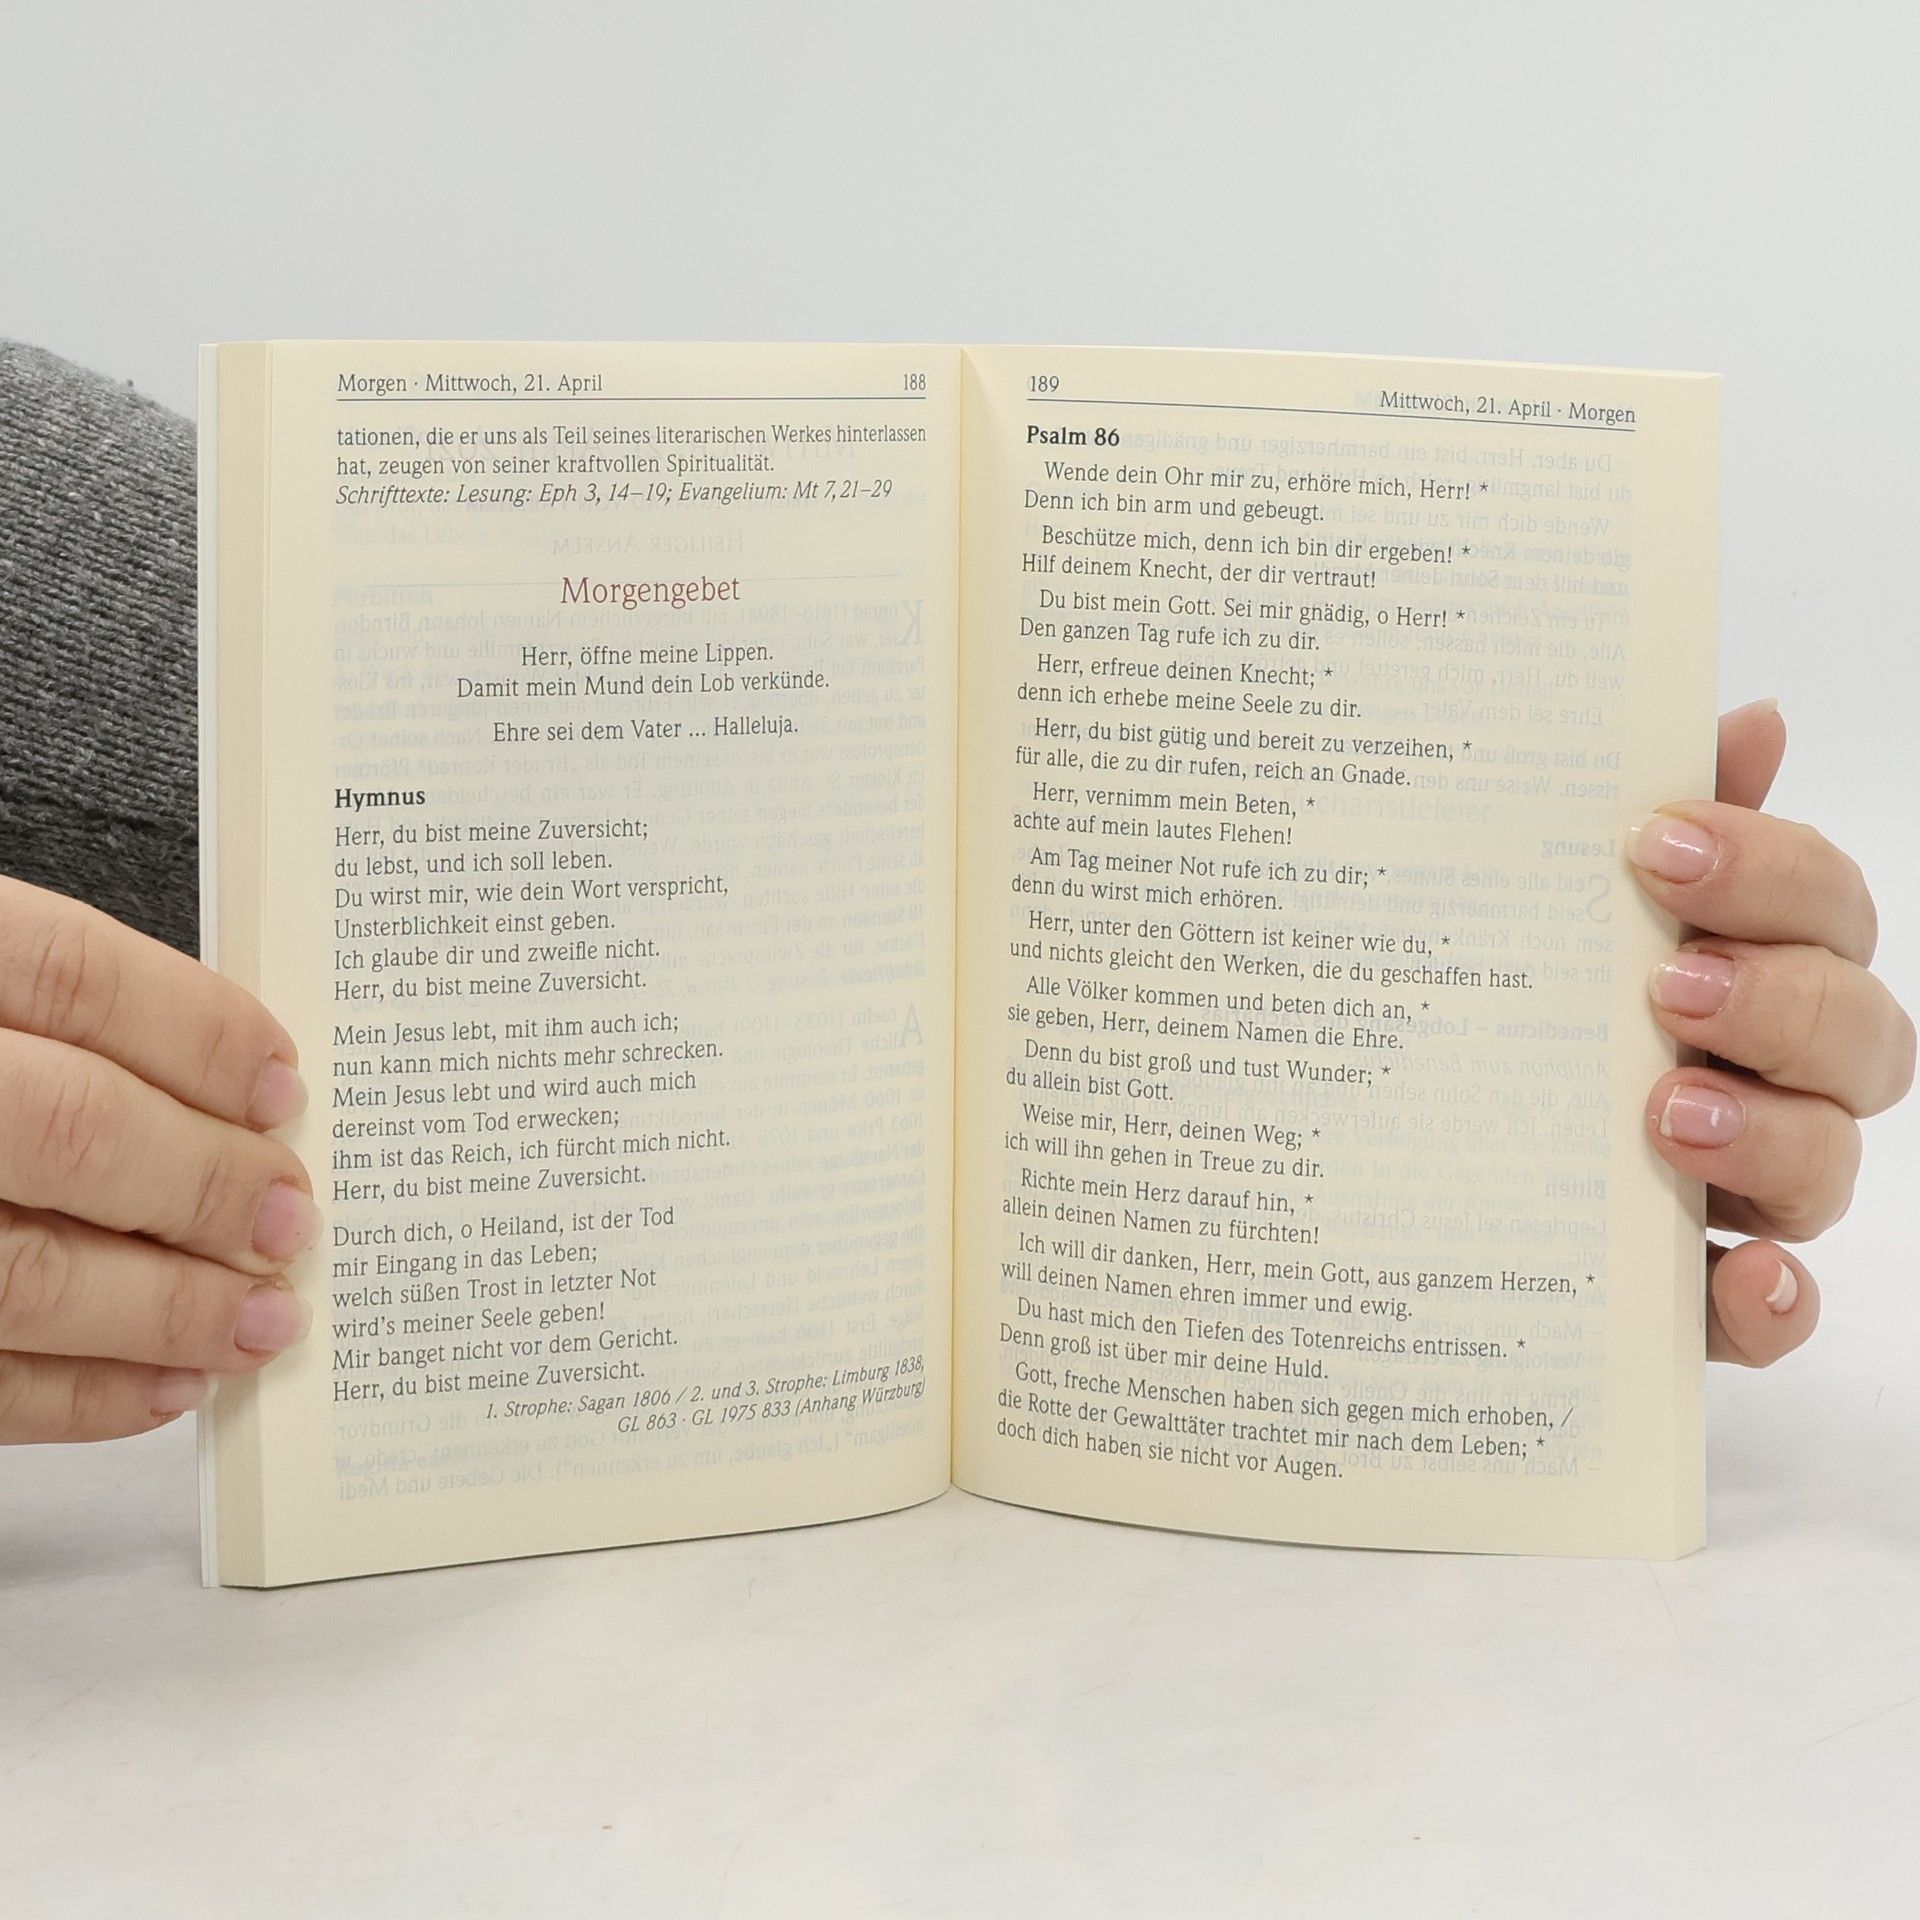 Morgen · Mittwoch, 21. April 188
tationen, die er uns als Teil seines literarischen Werkes hinterlassen
hat, zeugen von seiner kraftvollen Spiritualität.
Schrifttexte: Lesung: Eph 3, 14–19; Evangelium: Mt 7, 21–29
Morgengebet
Herr, öffne meine Lippen.
Damit mein Mund dein Lob verkünde.
Ehre sei dem Vater ... Halleluja.
Hymnus
Herr, du bist meine Zuversicht;
du lebst, und ich soll leben.
Du wirst mir, wie dein Wort verspricht,
Unsterblichkeit einst geben.
Ich glaube dir und zweifle nicht.
Herr, du bist meine Zuversicht.
Mein Jesus lebt, mit ihm auch ich;
nun kann mich nichts mehr schrecken.
Mein Jesus lebt und wird auch mich
dereinst vom Tod erwecken;
ihm ist das Reich, ich fürcht mich nicht.
Herr, du bist meine Zuversicht.
Durch dich, o Heiland, ist der Tod
mir Eingang in das Leben;
welch süßen Trost in letzter Not
wird's meiner Seele geben!
Mir banget nicht vor dem Gericht.
Herr, du bist meine Zuversicht.
1. Strophe: Sagan 1806 / 2. und 3. Strophe: Limburg 1838,
GL 863 · GL 1975 833 (Anhang Würzburg)
189 Mittwoch, 21. April · Morgen
Psalm 86
Wende dein Ohr mir zu, erhöre mich, Herr! *
Denn ich bin arm und gebeugt.
Beschütze mich, denn ich bin dir ergeben! *
Hilf deinem Knecht, der dir vertraut!
Du bist mein Gott. Sei mir gnädig, o Herr! *
Den ganzen Tag rufe ich zu dir.
Herr, erfreue deinen Knecht; *
denn ich erhebe meine Seele zu dir.
Herr, du bist gütig und bereit zu verzeihen, *
für alle, die zu dir rufen, reich an Gnade.
Herr, vernimm mein Beten, *
achte auf mein lautes Flehen!
Am Tag meiner Not rufe ich zu dir; *
denn du wirst mich erhören.
Herr, unter den Göttern ist keiner wie du, *
und nichts gleicht den Werken, die du geschaffen hast.
Alle Völker kommen und beten dich an, *
sie geben, Herr, deinem Namen die Ehre.
Denn du bist groß und tust Wunder; *
du allein bist Gott.
Weise mir, Herr, deinen Weg; *
ich will ihn gehen in Treue zu dir.
Richte mein Herz darauf hin, *
allein deinen Namen zu fürchten!
Ich will dir danken, Herr, mein Gott, aus ganzem Herzen, *
will deinen Namen ehren immer und ewig.
Du hast mich den Tiefen des Totenreichs entrissen. *
Denn groß ist über mir deine Huld.
Gott, freche Menschen haben sich gegen mich erhoben, /
die Rotte der Gewalttäter trachtet mir nach dem Leben; *
doch dich haben sie nicht vor Augen.